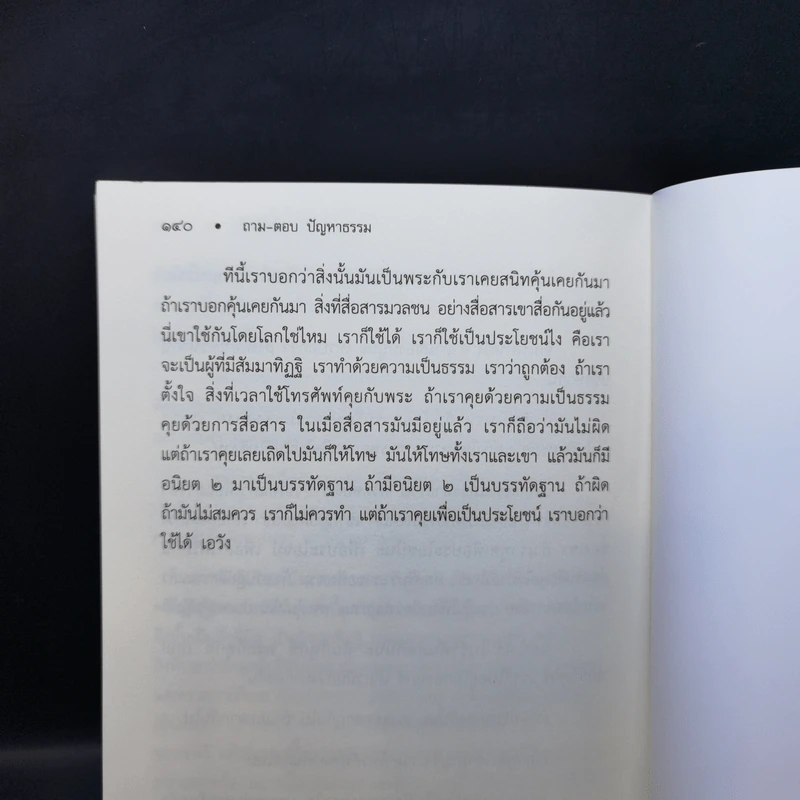 ๑๔๐ • ถาม-ตอบ ปัญหาธรรม
ทีนี้เราบอกว่าสิ่งนั้นมันเป็นพระกับเราเคยสนิทคุ้นเคยกันมา
ถ้าเราบอกคุ้นเคยกันมา สิ่งที่สื่อสารมวลชน อย่างสื่อสารเขาสื่อกันอยู่แล้ว
นี่เขาใช้กันโดยโลกใช่ไหม เราก็ใช้ได้ เราก็ใช้เป็นประโยชน์ไง คือเรา
จะเป็นผู้ที่มีสัมมาทิฏฐิ เราทำด้วยความเป็นธรรม เราว่าถูกต้อง ถ้าเรา
ตั้งใจ สิ่งที่เวลาใช้โทรศัพท์คุยกับพระ ถ้าเราคุยด้วยความเป็นธรรม
คุยด้วยการสื่อสาร ในเมื่อสื่อสารมันมีอยู่แล้ว เราก็ถือว่ามันไม่ผิด
แต่ถ้าเราคุยเลยเถิดไปมันก็ให้โทษ มันให้โทษทั้งเราและเขา แล้วมันก็มี
อนิยต ๒ มาเป็นบรรทัดฐาน ถ้ามีอนิยต ๒ เป็นบรรทัดฐาน ถ้าผิด
ถ้ามันไม่สมควร เราก็ไม่ควรทำ แต่ถ้าเราคุยเพื่อเป็นประโยชน์ เราบอกว่า
ใช้ได้ เอวัง